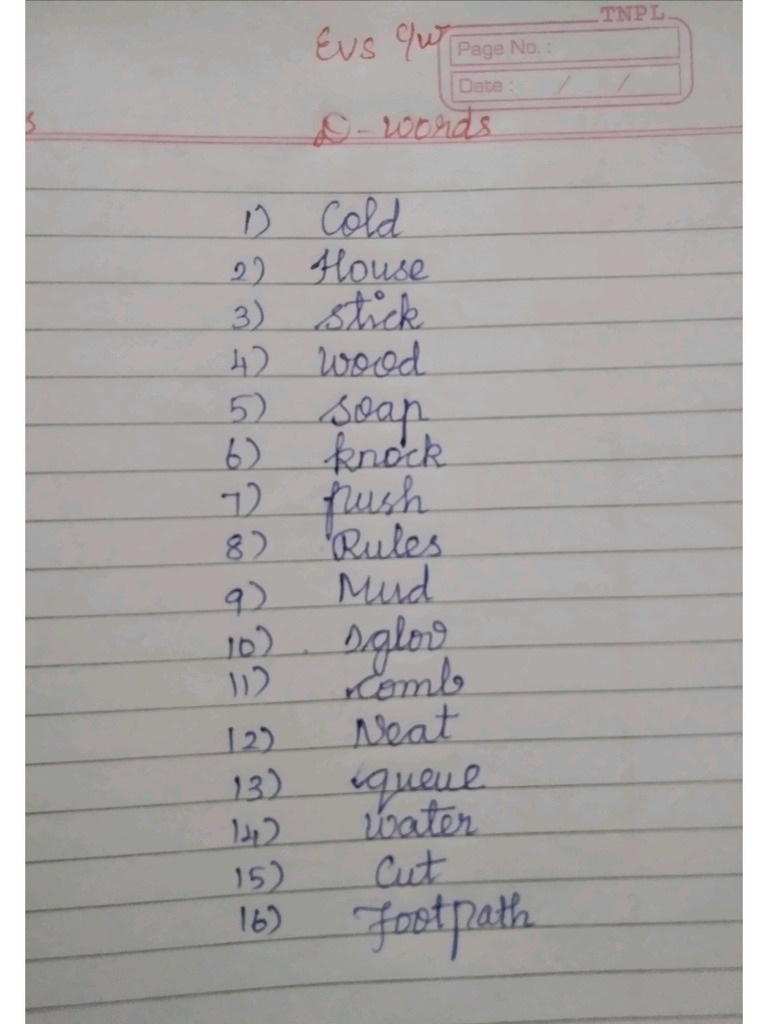 TNPL
EVS C/W
Page No. :
Date : / /
s
D-words
1) Cold
2) House
3) stick
4) wood
5) soap
6) knock
7) push
8) Rules
9) Mud
10) Igloo
11) comb
12) Neat
13) queue
14) water
15) Cut
16) Footpath